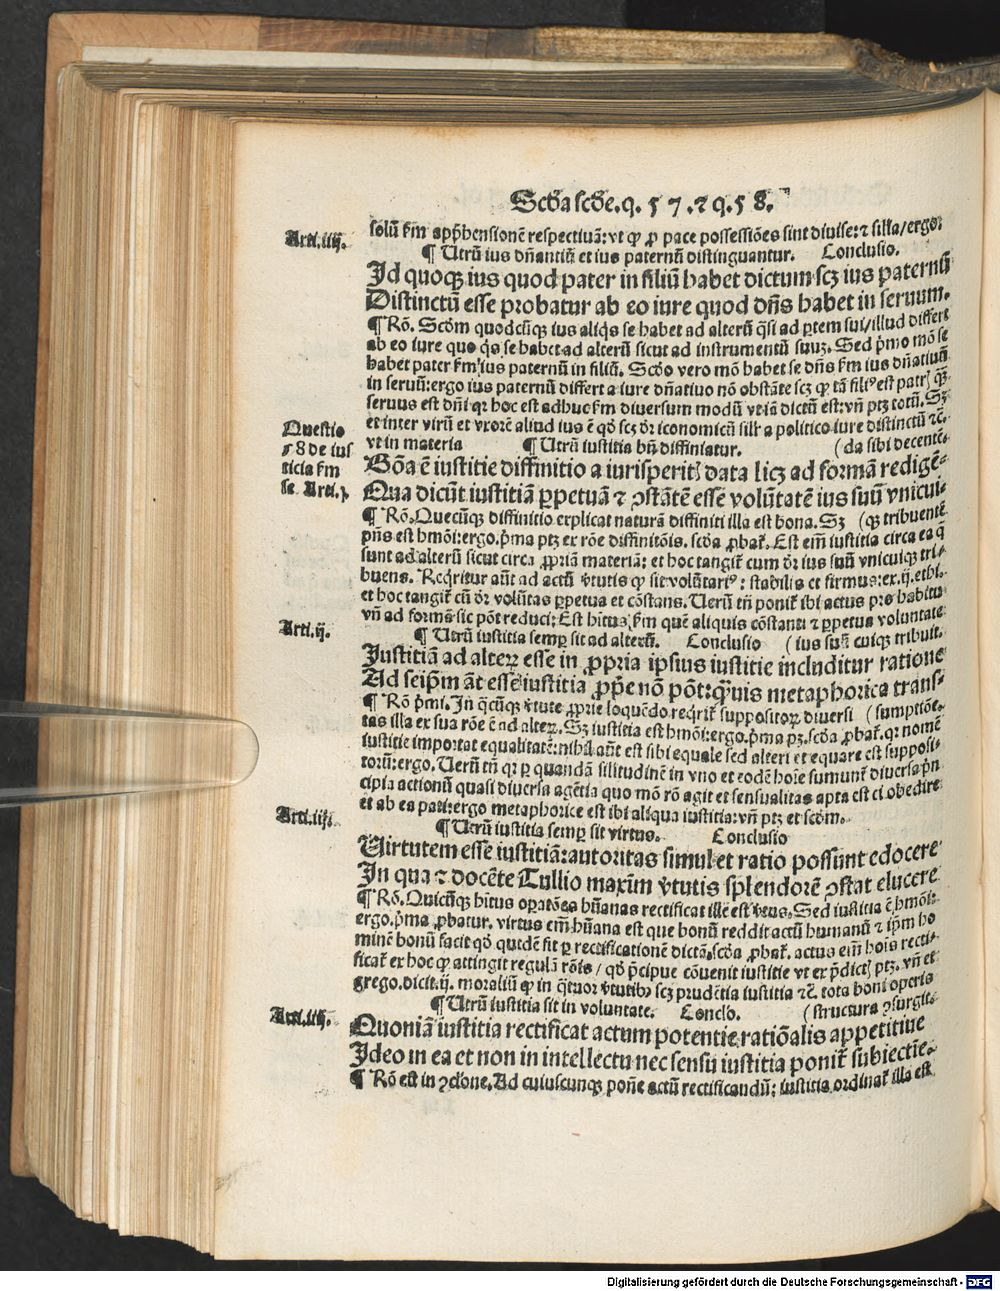 Scďa scďe.q.57.⁊ q.58.
solũ ẜm apꝓhensionẽ respectiuã: vt ꝙ ꝓ pace possessiões sint diuise: ⁊ silĩa/ergo.
Arti.iiij.
¶ Utrũ ius dñantiũ et ius paternũ distinguantur. Conclusio.
Id quoqꝫ ius quod pater in filiũ habet dictum scꝫ ius paternũ
Distinctũ esse probatur ab eo iure quod dñs habet in seruum.
¶ Rõ. Scďm quodcũqꝫ ius aliq̃s se habet ad alterũ q̃si ad ꝑtem sui/illud differt
ab eo iure quo q̃s se habet ad alterũ sicut ad instrumentũ suuꝫ. Sed p̃mo mõ se
habet pater ẜm ius paternũ in filiũ. Scďo vero mõ habet se dñs ẜm ius dñatiuũ
in seruũ: ergo ius paternũ differt a iure dñatiuo nõ obstãte scꝫ ꝙ tã filiꝰ est patrꝭ qꝫ
seruus est dñi qꝛ hoc est adhuc ẜm diuersum modũ vt iã dictũ est: vñ ptꝫ totũ. Sꝫ
et inter virũ et vxorẽ aliud ius ẽ qď scꝫ dr̃ iconomicũ silr̃ a politico iure distinctũ ⁊c̃.
vt in materia ¶ Utrũ iustitia bñ diffiniatur. (da sibi decentẽ.
Questio
58 de ius
ticia ẜm
se Arti.j.
Bõa ẽ iustitie diffinitio a iurisperitꝭ data licꝫ ad formã redigẽ-
Qua dicũt iustitiã ꝑpetuã ⁊ ꝯstãtẽ esse volũtatẽ ius suũ vnicui-
¶ Rõ. Quecũqꝫ diffinitio explicat naturã diffiniti illa est bona. Sꝫ (qꝫ tribuentẽ
p̃ns est hmõi: ergo. p̃ma ptꝫ ex rõe diffinitõis. scďa ꝓbat̃. Est em̃ iustitia circa ea q̃
sunt ad alterũ sicut circa ꝓpriã materiã: et hoc tangit̃ cum dr̃ ius suũ vnicuiqꝫ tri-
buens. Req̃ritur aũt ad actũ v̾tutis ꝙ sit volũtariꝰ: stabilis et firmus: ex.ij.ethi.
et hoc tangit̃ cũ dr̃ volũtas ꝑpetua et cõstans. Uerũ tñ ponit̃ ibi actus pro habitu
vñ ad formã sic põt reduci: Est hitus ẜm quẽ aliquis cõstanti ⁊ ꝑpetua voluntate
Arti.ij.
¶ Utrũ iustitia semꝑ sit ad alterũ. Conclusio (ius suũ cuiqꝫ tribuit.
Justitiã ad alterꝫ esse in ꝓpria ipsius iustitie includitur ratione
Ad seip̃m ãt esse iustitia ꝓp̃e nõ põt: q̃uis metaphorica trans-
¶ Rõ p̃mi. In q̃cũqꝫ v̾tute ꝓprie loquẽdo req̃rit̃ suppositoꝝ diuersi (sumptiõe.
tas illa ex sua rõe ẽ ad alterꝫ. Sꝫ iustitia est hmõi: ergo. p̃ma pꝫ. scďa ꝓbat̃. qꝛ nomẽ
iustitie importat equalitatẽ: nihil aũt est sibi equale sed alteri et equare est supposi-
torũ: ergo. Uerũ tñ qꝛ ꝑ quandã silitudinẽ in vno et eodẽ hoĩe sumunt̃ diuersa p̃n
cipia actionũ quasi diuersa agẽtia quo mõ rõ agit et sensualitas apta est ei obedire
et ab ea pati: ergo metaphorice est ibi aliqua iustitia: vñ ptꝫ et scďm.
Arti.iij.
¶ Utrũ iustitia semꝑ sit virtus. Conclusio
Uirtutem esse iustitiã: autoritas simul et ratio possunt edocere
In qua ⁊ docẽte Tullio maxim̃ v̾tutis splendorẽ ꝯstat elucere
¶ Rõ. Quicũqꝫ hitus oꝑatões hũanas rectificat ille est v̾tus. Sed iustitia ẽ hmõi:
ergo. p̃ma ꝓbatur. virtus em̃ hũana est que bonũ reddit actũ humanũ ⁊ ip̃m ho
minẽ bonũ facit qď quidẽ fit ꝑ rectificationẽ dictã. scďa ꝓbat̃. actus em̃ hoĩs recti-
ficat̃ ex hoc ꝙ attingit regulã rõis/ qď p̃cipue cõuenit iustitie vt ex p̃dictꝭ ptꝫ. vñ et
grego. dicit.ij. moraliũ ꝙ in q̃tuor v̾tutibꝰ scꝫ prudẽtia iustitia ⁊c̃. tota boni operis
¶ Utrũ iustitia sit in voluntate. Conclo. (structura ꝯsurgit.
Arti.iiij.
Quoniã iustitia rectificat actum potentie ratiõalis appetitiue
Ideo in ea et non in intellectu nec sensu iustitia ponit̃ subiectiẽ.
¶ Rõ est in ꝯclõne. Ad cuiuscunqꝫ poñe actũ rectificandũ: iustitia ordinat̃ illa est
Digitalisierung gefördert durch die Deutsche Forschungsgemeinschaft - DFG